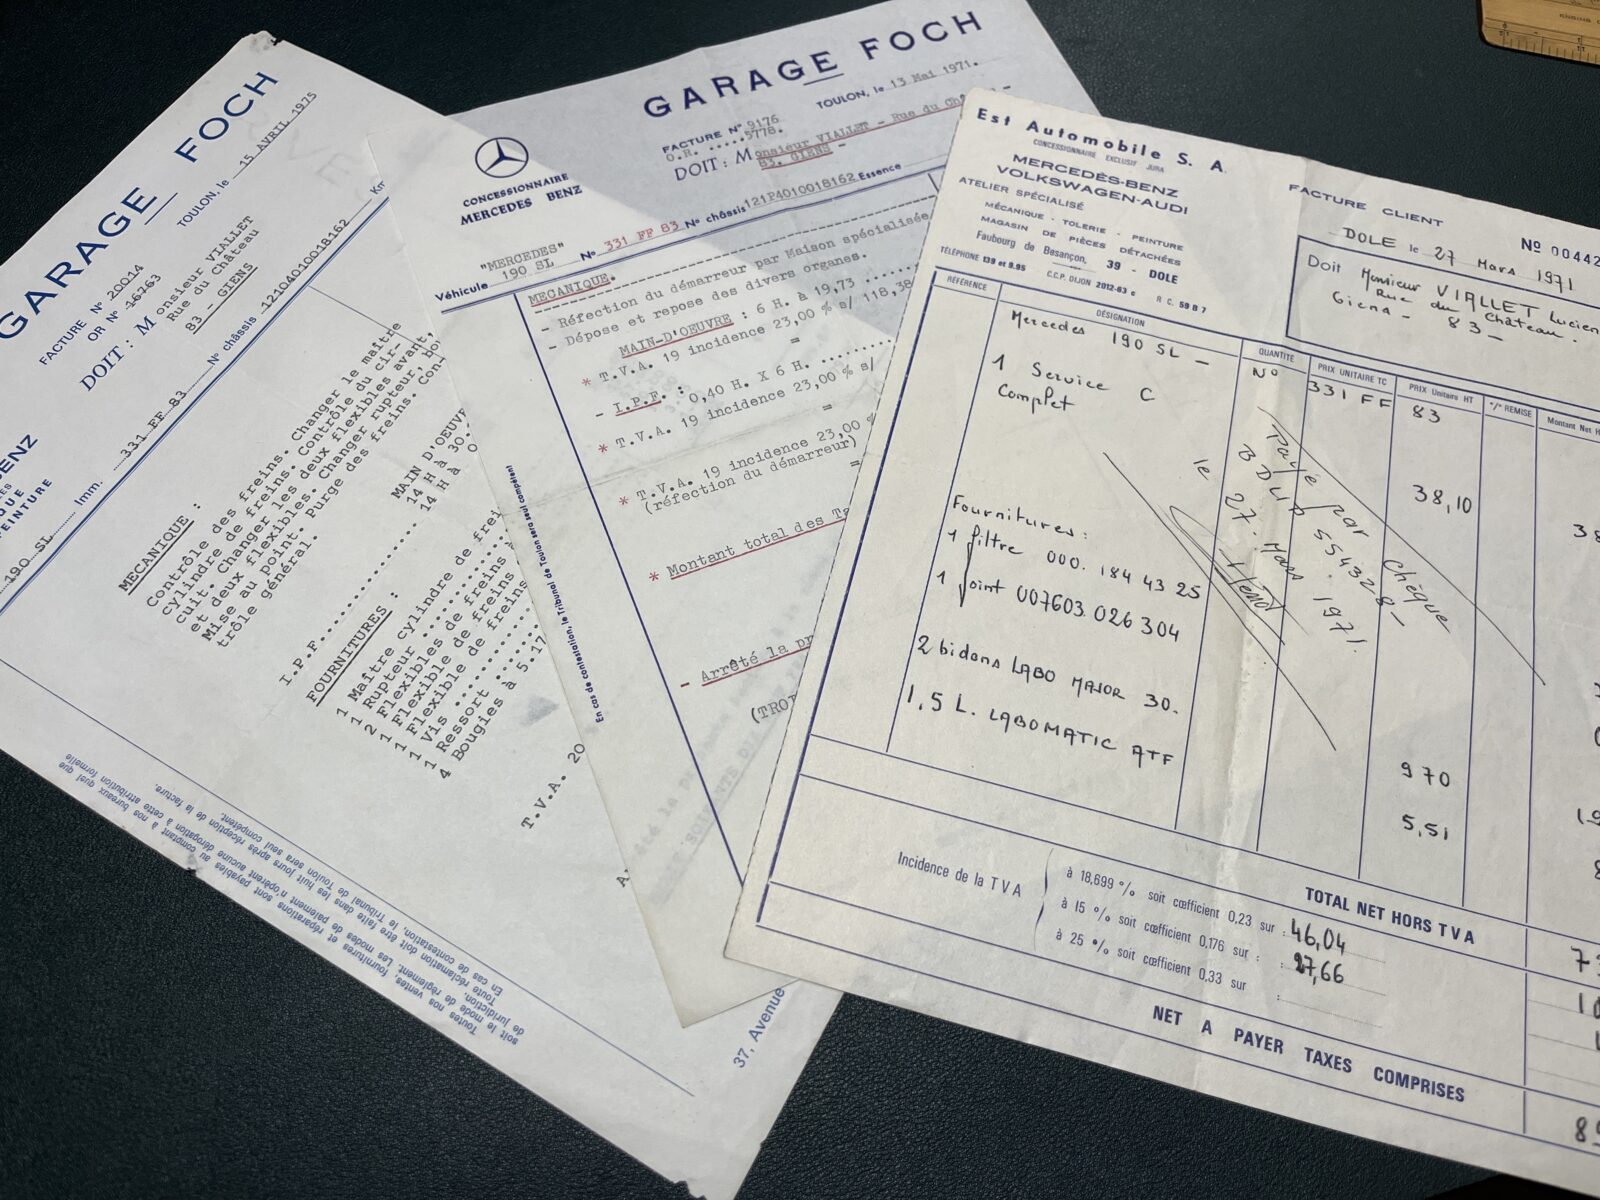 GARAGE FOCH
TOULON, le 15 AVRIL 1975
FACTURE N° 20Q14
OR N° 46763
DOIT : Monsieur VIALLET
Rue du Château
83 - GIENS
190 SL Imm. 331 FF 83 N° châssis 12104010018162 Km
ENZ
QUE
EINTURE
MECANIQUE :
Contrôle des freins. Changer le maître
cylindre de freins. Contrôle du cir-
cuit. Changer les deux flexibles avant,
et deux flexibles. Changer rupteur,
Mise au point. Purge des freins. Con-
trôle général.
MAIN D'OEUV
14 H à 30.
14 H à 0
I.P.F.
FOURNITURES :
1 Maître cylindre de frei
1 Rupteur
2 Flexibles de freins
1 Flexible de freins
1 Flexible de freins
1 Vis
1 Ressort
4 Bougies à 5.17
T.V.A. 20
Toutes nos ventes, fournitures et réparations sont payables au comptant à nos bureaux quel que
soit le mode de règlement. Les modes de paiement n'opèrent aucune dérogation à cette attribution formelle
de juridiction.
Toute réclamation doit être faite dans les huit jours après réception de la facture.
En cas de contestation, le Tribunal de Toulon sera seul compétent.
37, Avenue
GARAGE FOCH
TOULON, le 13 Mai 1971.
FACTURE N° 9176
O.R. .....5778.
DOIT : Monsieur VIALLET - Rue du Châ
83. GIENS -
CONCESSIONNAIRE
MERCEDES BENZ
"MERCEDES"
Véhicule 190 SL N° 331 FF 83 N° châssis 121P4010018162 Essence
MECANIQUE.
- Réfection du démarreur par Maison spécialisée
- Dépose et repose des divers organes.
MAIN-D'OEUVRE : 6 H. à 19,73
* T.V.A. 19 incidence 23,00 % s/ 118,38
=
- I.P.F. : 0,40 H. X 6 H.
* T.V.A. 19 incidence 23,00 % s/
=
* T.V.A. 19 incidence 23,00 %
(réfection du démarreur)
=
* Montant total des T
- Arrêté la pr
(TROI
En cas de contestation, le Tribunal de Toulon sera seul compétent
Est Automobile S. A.
CONCESSIONNAIRE EXCLUSIF JURA
MERCEDES-BENZ
VOLKSWAGEN-AUDI
ATELIER SPÉCIALISÉ
MÉCANIQUE - TOLERIE - PEINTURE
MAGASIN DE PIÈCES DÉTACHÉES
Faubourg de Besançon, 39 - DOLE
TÉLÉPHONE 139 et 9.95 C.C.P. DIJON 2012-63 c R C. 59 B 7
FACTURE CLIENT
N° 00442
DOLE le 27 Mars 1971
Doit Monsieur VIALLET Lucien
Rue du Château.
Giens - 83 -
RÉFÉRENCE DÉSIGNATION QUANTITÉ PRIX UNITAIRE TC PRIX Unitaire HT °/° REMISE Montant Net H
Mercedes 190 SL - N° 331 FF 83
1 Service C
complet 38,10 38
Fournitures :
1 filtre 000. 184 43 25
1 joint 007603 026 304
2 bidons LABO MAJOR 30. 970 19
1,5 L. LABOMATIC ATF 5,51 8
payée par chèque
BDUP 554328-
le 27. Mars. 1971.
TOTAL NET HORS TVA 73
Incidence de la TVA
à 18,699 % soit cœfficient 0,23 sur : 46,04
à 15 % soit cœfficient 0,176 sur : 27,66
à 25 % soit cœfficient 0,33 sur :
NET A PAYER TAXES COMPRISES 89